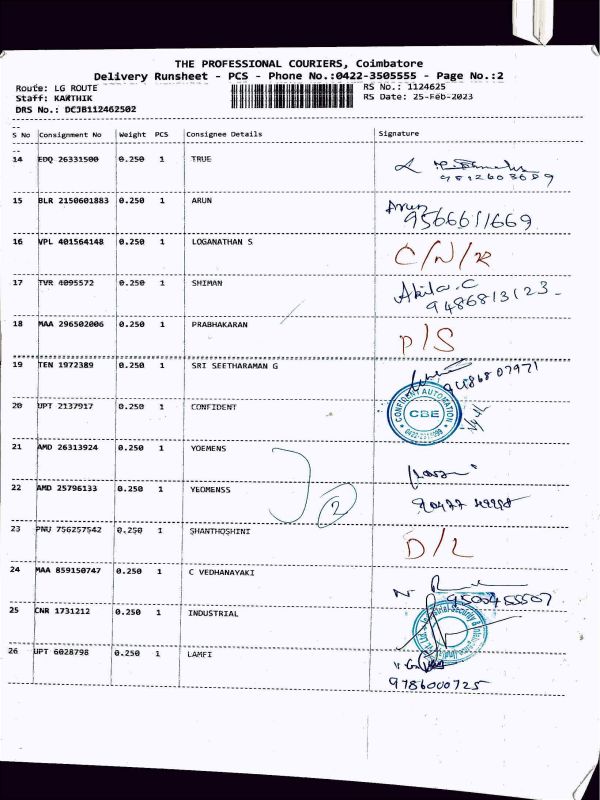 THE PROFESSIONAL COURIERS, Coimbatore
Delivery Runsheet - PCS - Phone No.:0422-3505555 - Page No.:2
Route: LG ROUTE
RS No.: 1124625
Staff: KARTHIK
RS Date: 25-Feb-2023
DRS No.: DCJB112462502
S No Consignment No Weight PCS Consignee Details Signature
14 EDQ 26331500 0.250 1 TRUE
15 BLR 2150601883 0.250 1 ARUN Arun
9566611669
16 VPL 401564148 0.250 1 LOGANATHAN S C/N/R
17 TVR 4095572 0.250 1 SHIMAN Akila.C
9486813123
18 MAA 296502006 0.250 1 PRABHAKARAN P/S
19 TEN 1972389 0.250 1 SRI SEETHARAMAN G 9486807971
20 UPT 2137917 0.250 1 CONFIDENT CONFIDENT AUTOMATION CBE
21 AMD 26313924 0.250 1 YOEMENS
22 AMD 25796133 0.250 1 YEOMENSS 2
23 PNU 756257542 0.250 1 SHANTHOSHINI D/L
24 MAA 859150747 0.250 1 C VEDHANAYAKI
9500455507
25 CNR 1731212 0.250 1 INDUSTRIAL
26 UPT 6028798 0.250 1 LAMFI
9786000725